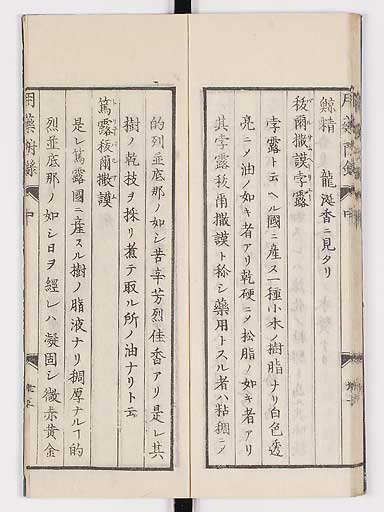 鯨精　龍涎香ニ見タリ
祓爾撒謨孛露
孛露ト云ヘル國ニ産ス一種小木ノ樹脂ナリ白色透
亮ニノ油ノ如キ者アリ乾硬ニノ松脂ノ如キ者アリ
其孛露祓爾撒謨ト称シ藥用トスル者ハ粘稠ニノ
用藥附録
中
的列並底那ノ如シ苦辛芳烈佳香アリ是レ其
樹ノ乾技ヲ採リ煮テ取ル所ノ油ナリト云
篤露祓爾撒謨
是レ篤露國ニ産スル樹ノ脂液ナリ稠厚ナルコ的
烈並底那ノ如シ日ヲ經レハ凝固シ微赤黄金